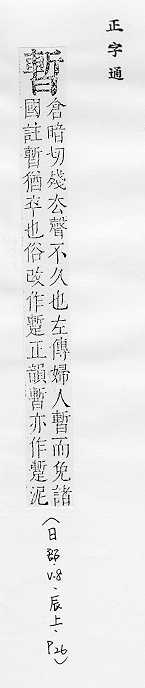 正字通
暫
倉暗切殘厺聲不久也左傳婦人暫而免諸
國註暫猶卒也俗改作蹔正韻暫亦作蹔泥
(日部.V.8.辰上.P26)